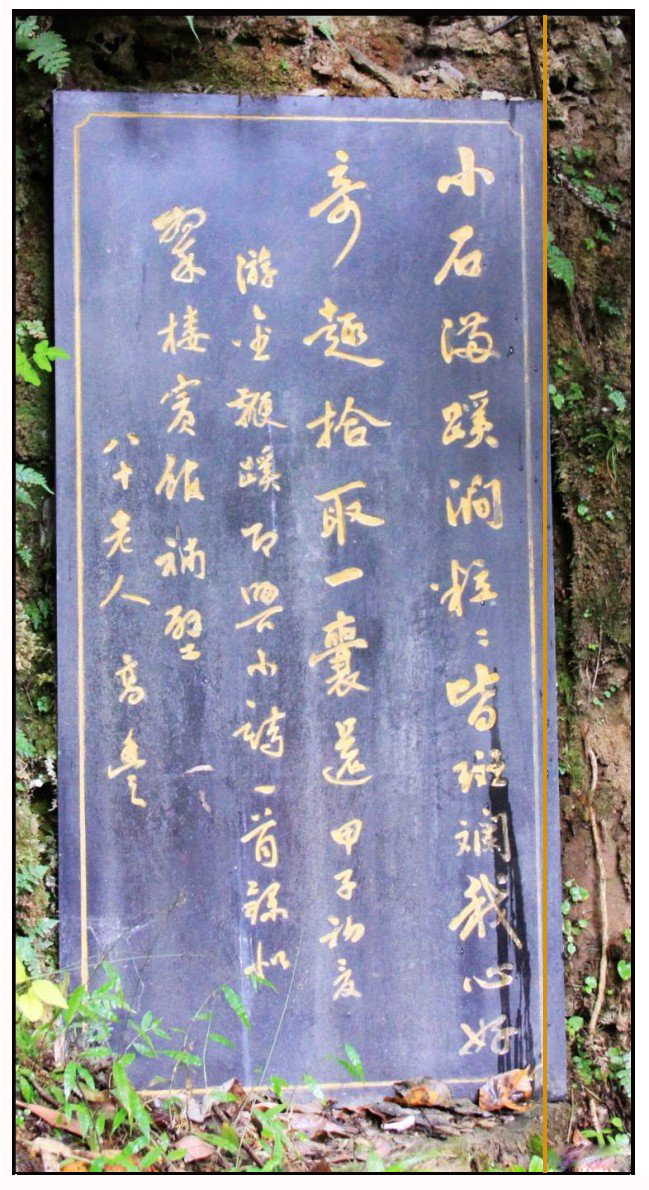 小石满蹊涧粒〻皆斑斓我心好
奇趣拾取一囊还甲子初夏
游金鞭蹊即兴小诗一首录于
翠楼宾馆补壁
八十老人高